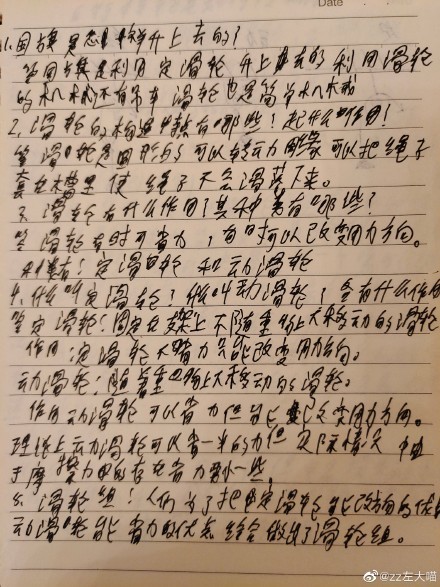 Date
1.国旗是怎样升上去的?
答国旗是利用定滑轮升上去的利用滑轮
的机械还有吊车滑轮也是简单机械
2.滑轮的构造特点有哪些!起什么作用!
答滑轮是圆形的可以转动 可以把绳子
套在槽里使绳子不会滑落下来。
3.滑轮有什么作用?其种类有哪些?
答滑轮有时可省力,有时可以改变用力方向。
种类有!定滑轮和动滑轮
4.什么叫定滑轮?什么叫动滑轮?各有什么作用
答定滑轮!固定在架上不随重物上下移动的滑轮
作用:定滑轮不省力只能改变用力方向。
动滑轮!随着重物上下移动的滑轮。
作用动滑轮可以省力但 改变用力方向。
理论上动滑轮可以省一半的力但实际情况由
于摩擦力的存在省力 小一些,
5.滑轮组!人们为了把定滑轮能改方向的优
动滑轮能省力的优点结合做出了滑轮组。
@zz左大喵